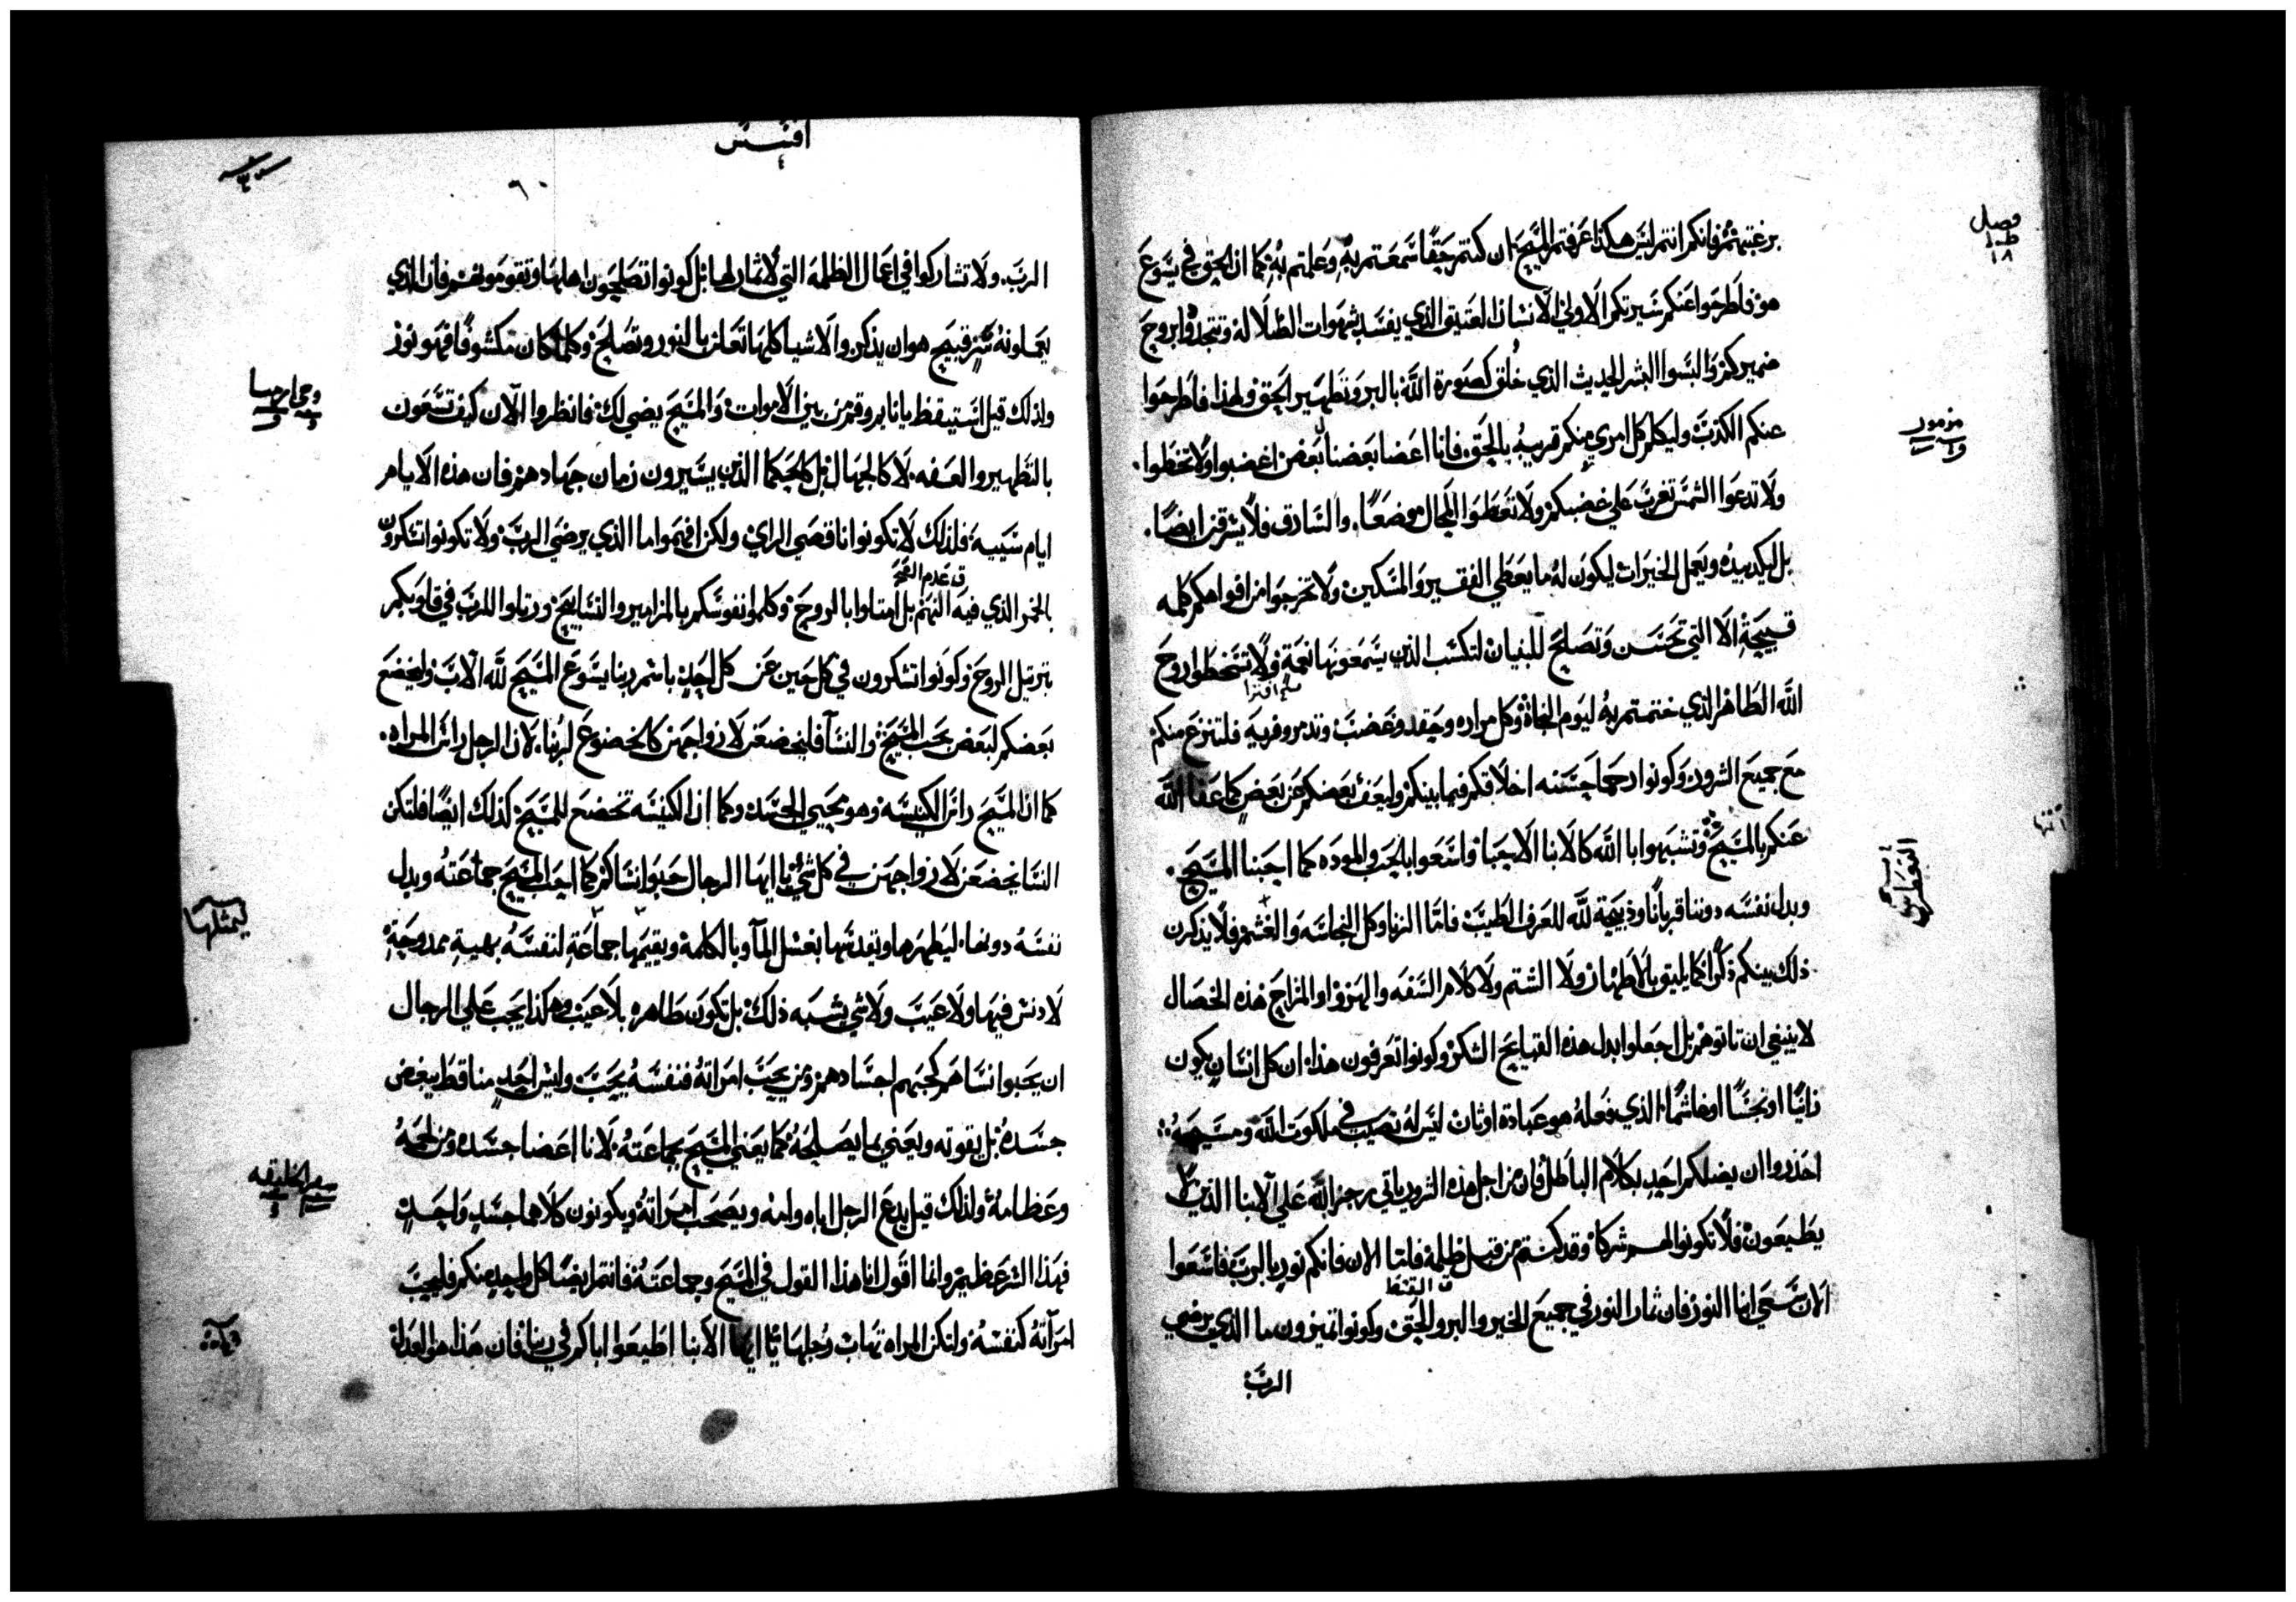 فصل
١٨
برغبتهم فانكم انتم ليس هكذا عرفتم المسيح ان كنتم حقا سمعتم به وعلمتم به كما ان الحق في يسوع
هو فاطرحوا عنكم سيرتكم الاولي الانسان العتيق الذي يفسد بشهوات الضلاله وتتجددوا بروح
ضميركم والبسوا البشر الحديث الذي خلق كصورة الله بالبر وتطهير الحق ولهذا فاطرحوا
مزمور
عنكم الكذب وليكلم كل امري منكم قريبه بالحق فانا اعضا بعضنا لبعض اغضبوا ولا تخطوا
ولا تدعوا الشمس تغرب علي غضبكم ولا تعطوا المحال موضعا والسارق فلا يسرقن ايضا
بل ليكد بيده ويعمل الخيرات ليكون له ما يعطي الفقير والمسكين ولا تخرجوا من افواهكم كلمه
قبيحة الا التي تحسن وتصلح للبنيان لتكسب الذين يسمعونها نعمة ولا تسخطوا روح
الله الطاهر الذي ختمتم به ليوم النجاة وكل مراره وحقد وغضب وتذمر وفرية فلتنزع منكم
مع جميع الشرور وكونوا رحما حسنه اخلاقكم فيما بينكم وليعف بعضكم عن بعض كما عفا الله
عنكم بالمسيح وتشبهوا بالله كالابنا الاحبا واسعوا بالحب والموده كما احبنا المسيح
وبدل نفسه دوننا قربانا وذبيحة لله للعرف الطيب فاما الزنا وكل النجاسه والغشم فلا يذكرن
ذلك بينكم ذكرا كما يليق بالاطهار ولا الشتم ولا كلام السفه والهزوا والمزاح هذه الخصال
لا ينبغي ان تاتوهم بل اجعلوا بدل هذه القبايح الشكر وكونوا تعرفون هذا ان كل انسان يكون
زانيا او نجسا او غاشما الذي فعله هو عبادة اوثان ليس له نصيب في ملكوت الله ومسيحه
احذروا ان يضلكم احد بكلام الباطل فان من اجل هذه الشرور ياتي رجز الله علي الابنا الذين لا
يطيعون فلا تكونوا لهم شركا وقد كنتم من قبل ظلمة فاما الان فانكم نور بالرب فاسعوا
ق القسط
الان سعي ابنا النور فان ثمار النور في جميع الخير والبر والحق وكونوا تميزون ما الذي يرضي
الرب
افسس
٦٠
الرب ولا تشاركوا في اعمال الظلمه التي لا ثمار لها بل كونوا تصلحون اهلها وتقومونهم فان الذي
يعملونه سر قبيح هو ان يذكر والاشيا كلها تعلن بالنور وتصلح وكلما كان مكشوفا فهو نور
ولذلك قيل استيقظ يا نايم وقم من بين الاموات والمسيح يضي لك فانظروا الان كيف تسعون
بالتطهير والعفه لا كالجهال بل كالحكما الذين يشترون زمان جهادهم فان هذه الايام
ايام سييه فلذلك لا تكونوا ناقصي الراي ولكن افهموا ما الذي يرضي الرب ولا تكونوا تسكرون
ق عدم الصحة
بالخمر الذي فيه النهم بل امتلوا بالروح وكلموا نفوسكم بالمزامير والتسابيح ورتلوا للرب في قلوبكم
بترتيل الروح وكونوا تشكرون في كل حين عن كل احد باسم ربنا يسوع المسيح لله الاب وليخضع
بعضكم لبعض بحب المسيح والنسا فليخضعن لازواجهن كالخضوع لربنا لان الرجل راس المراه
كما ان المسيح راس الكنيسه وهو محيي الجسد وكما ان الكنيسه تخضع للمسيح كذلك ايضا فلتكن
النسا يخضعن لازواجهن في كل شي يا ايها الرجال حبوا نساكم كما احب المسيح جماعته وبدل
نفسه دونها ليطهرها ويقدسها بغسل الما وبالكلمة ويقيمها جماعة لنفسه بهية ممدوحة
لا دنس فيها ولا عيب ولا شي يشبه ذلك بل تكون طاهره بلا عيب وهكذا يجب علي الرجال
ان يحبوا نساهم كحبهم اجسادهم ومن يحب امراته فنفسه يحب وليس احد منا قط يبغض
جسده بل يقوته ويعني بما يصلحه كما يعني المسيح بجماعته لانا اعضا جسده ومن لحمه
سفر الخليقه
وعظامه ولذلك قيل يدع الرجل اباه وامه ويصحب امراته ويكونون كلاهما جسد واحد
فهذا السر عظيم وانما اقول انا هذا القول في المسيح وجماعته فانتم ايضا كل واحد منكم فليحب
امراته كنفسه ولتكن المراه تهاب رجلها يا ايها الابنا اطيعوا اباكم في ربنا فان هذا هو العدل